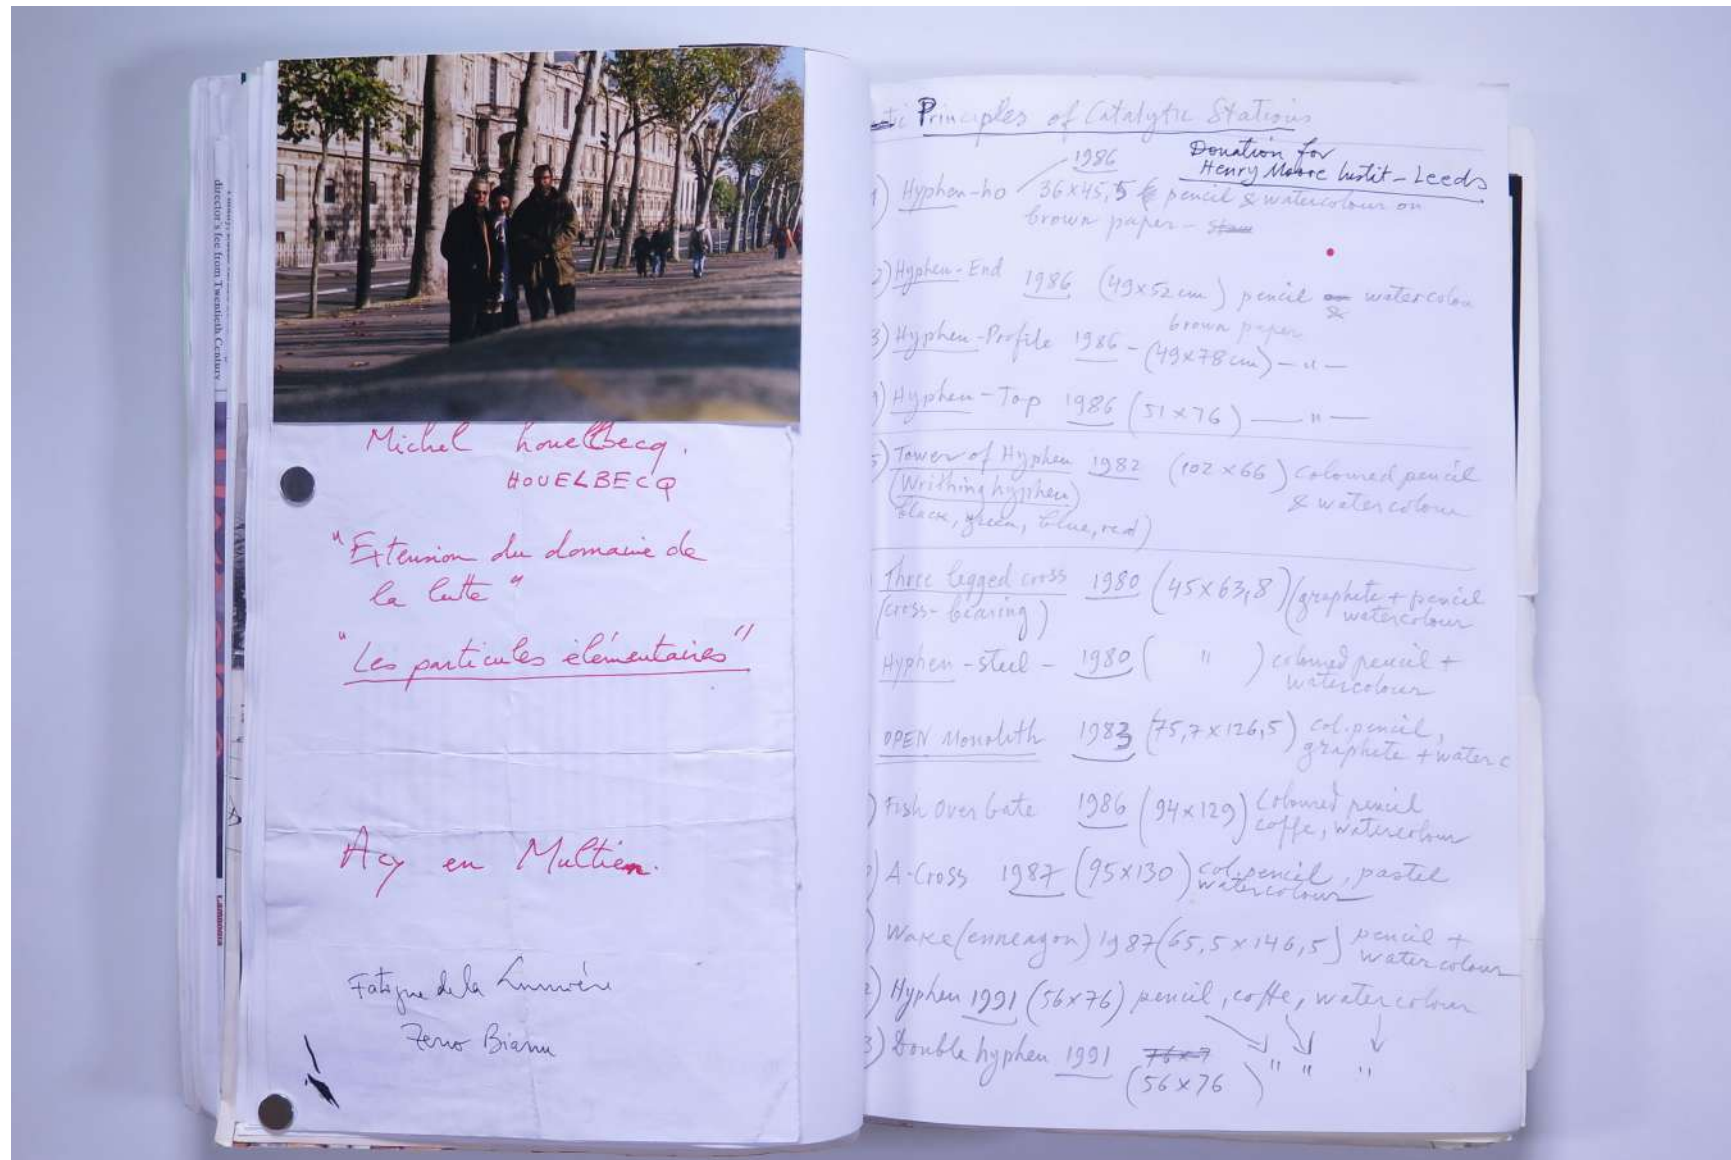 director's fee from Twentieth Century
Michel houellbecq.
HOUELBECQ
"Extension du domaine de
la lutte"
"Les particules élémentaires"
Acy en Multien.
Fatigue de la Lumière
Zeno Bianu
Principles of Catalytic Stations
Donation for
Henry Moore Instit - Leeds
1986
1) Hyphen-ho 36x45,5 pencil & watercolour on
brown paper -
2) Hyphen-End 1986 (49x52cm) pencil & watercolou
brown paper
3) Hyphen-Profile 1986 - (49x78cm) — " —
4) Hyphen-Top 1986 (51x76) — " —
5) Tower of Hyphen 1982 (102x66) coloured pencil
& watercolour
(Writhing hyphen)
black, green, blue, red)
Three legged cross 1980 (45x63,8) (graphite + pencil
watercolour
(cross-bearing)
Hyphen-steel - 1980 ( " ) coloured pencil +
watercolour
OPEN Monolith 1983 (75,7x126,5) col.pencil,
graphite + water c
) Fish Over Gate 1986 (94x129) coloured pencil
coffe, watercolour
) A-Cross 1987 (95x130) col.pencil, pastel
watercolour
) (enneagon) 1987 (65,5x146,5) pencil +
watercolour
2) Hyphen 1991 (56x76) pencil, coffe, watercolour
3) Double hyphen 1991 76x7 " " "
(56x76)